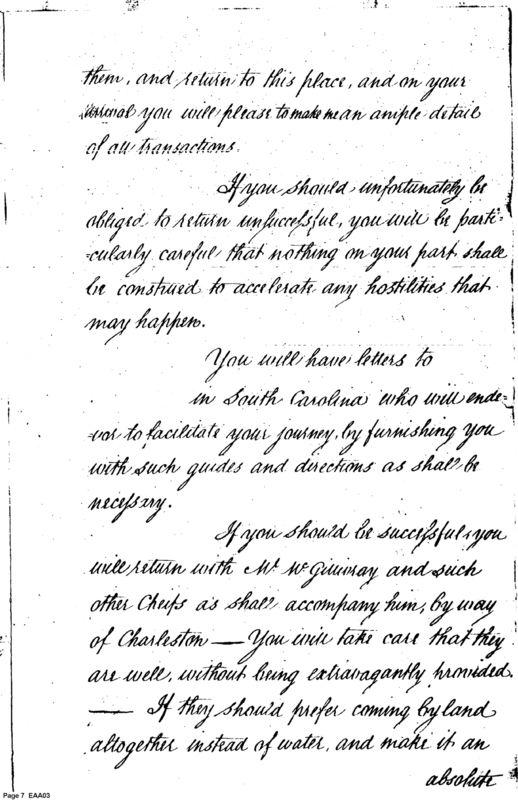 them, and return to this place, and on your
arrival you will please to make me an ample detail
of all transactions.
If you should unfortunately be
obliged to return unsuccessful, you will be parti=
=cularly careful that nothing on your part shall
be construed to accelerate any hostilities that
may happen.
You will have letters to
in South Carolina who will ende=
=vor to facilitate your journey, by furnishing you
with such guides and directions as shall be
necessary.
If you should be successful, you
will return with Mr McGillivray and such
other Cheifs as shall accompany him, by way
of Charleston — You will take care that they
are well, without being extravagantly provided.
— If they should prefer coming by land
altogether instead of water, and make it an
absolute
Page 7 EAA03